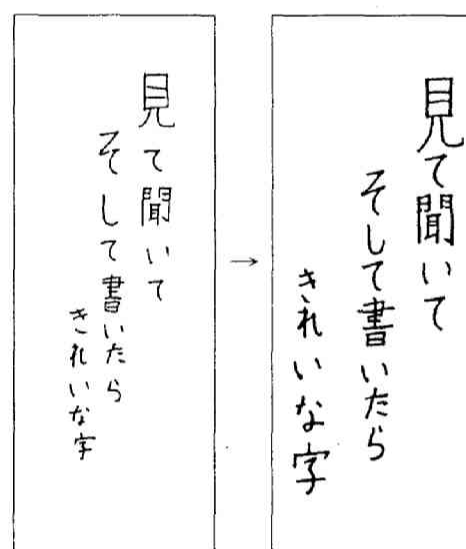 見て聞いて
そして書いたら
きれいな字
→
見て聞いて
そして書いたら
きれいな字